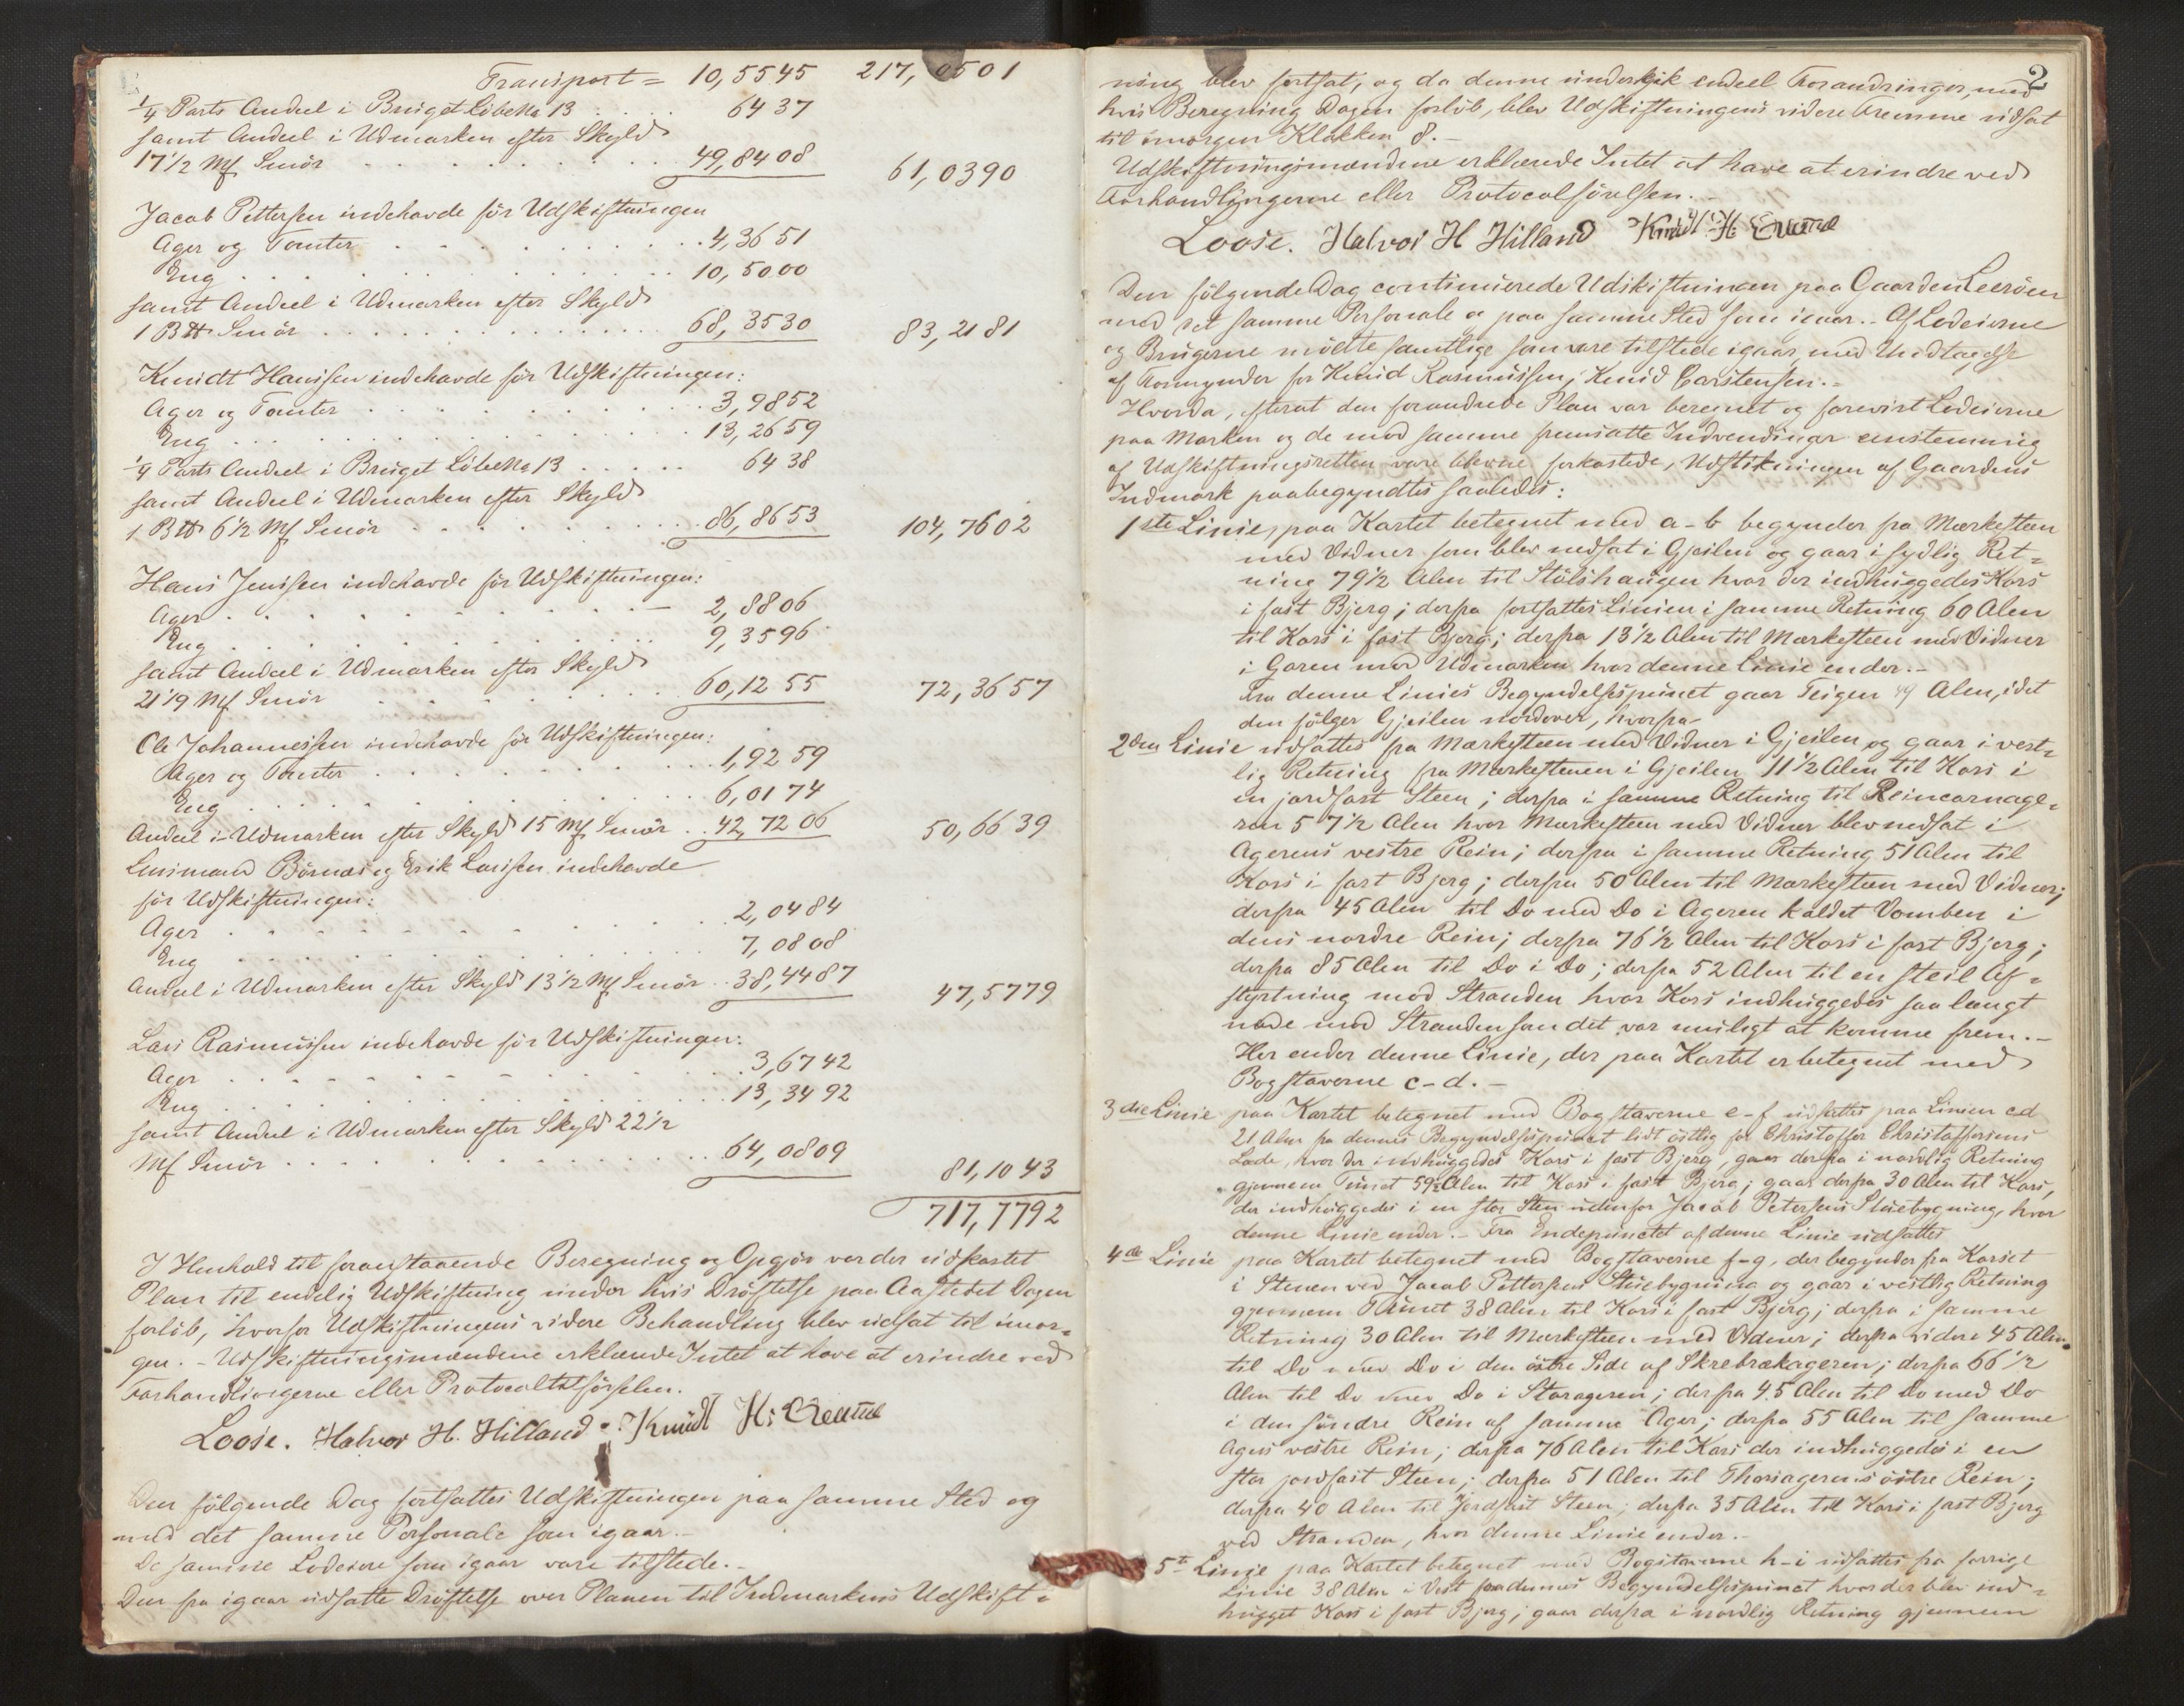 Transport = 10,5545 217,0501
1/4 Parts Andeel i Bruget Löbe No 13 . . . . 6437
samt Andeel i Udmarken efter Skyld
17 1/2 Mf Smör . . . . . . . . 49,8408 61,0390
Jacob Pettersen indehavde för Udskiftningen
Ager og Tomter . . . . . . . . 4,3651
Eng . . . . . . . . . . . 10,5000
samt Andeel i Udmarken efter Skyld
1 B℔ Smör . . . . . . . . . . 68,3530 83,2181
Knudt Hanssen indehavde för Udskiftningen:
Ager og Tomter . . . . . . . . 3,9852
Eng . . . . . . . . . . . 13,2659
1/4 Parts Andeel i Bruget Löbe No 13 . . . . . 6438
samt Andeel i Udmarken efter Skyld
1 B℔ 6 1/2 Mf Smör . . . . . . . . 86,8653 104,7602
Hans Jenssen indehavde för Udskiftningen:
Ager . . . . . . . . . . . 2,8806
Eng . . . . . . . . . . . 9,3596
samt Andeel i Udmarken efter Skyld
21 1/9 Mf Smör . . . . . . . . 60,1255 72,3657
Ole Johannessen indehavde för Udskiftningen:
Ager og Tomter . . . . . . . . 1,9259
Eng . . . . . . . . . . . 6,0174
Andeel i Udmarken efter Skyld 15 Mf Smör . . 42,7206 50,6639
Lensmand Börnæs og Erik Larssen indehavde
för Udskiftningen:
Ager . . . . . . . . . . . 2,0484
Eng . . . . . . . . . . . 7,0808
Andeel i Udmarken efter Skyld 13 1/2 Mf Smör . . 38,4487 47,5779
Lars Rasmussen indehavde för Udskiftningen:
Ager . . . . . . . . . . . 3,6742
Eng . . . . . . . . . . . 13,3492
samt Andeel i Udmarken efter Skyld 22 1/2
Mf Smör . . . . . . . . . . 64,0809 81,1043
717,7792
I Henhold til foranstaaende Beregning og Opgjör verder udkastet
Plan til endelig Udskiftning under hvis Dröftelse paa Aastedet Dagen
forlöb, hvorfor Udskiftningens videre Behandling blev udsat til imor-
gen. - Udskiftningsmændene erklærede Intet at have at erindre ved
Forhandlingerne eller Protocoltilförselen.
Loose. Halvor H. Hilland Knudt H:
Den fölgende Dag fortsattes Udskiftningen paa samme Sted og
med det samme Personale som igaar.-
De samme Lodeiere som igaar vare tilstede.-
Den fra igaar udsatte Dröftelse over Planen til Indmarkens Udskift-
2
ning blev fortsat, og da denne undergik endeel Forandringer, med
hvis Beregning Dagen forlöb, blev Udskiftningens videre Fremme udsat
til imorgen Klokken 8.-
Udskiftningsmændene erklærede Intet at have at erindre ved
Forhandlingerne eller Protocolförelsen.-
Loose. Halvor H Hilland Knudt H:
Den fölgende Dag continuerede Udskiftningen paa Gaarden Leeröen
med det samme Personale og paa samme Sted som igaar.- Af Lodeierne
og Brugerne mödte samtlige som vare tilstede igaar, med Undtagelse
af Formynder for Knud Rasmussen, Knud Carstensen.-
Hvorda, efterat den forandrede Plan var beregnet og forevist Lodeierne
paa Marken og de mod samme fremsatte Indvendinger eenstemmig
af Udskiftningsretten vare blevne forkastede, Udstikningen af Gaardens
Indmark paabegyndtes saaledes:
1ste Linie, paa Kartet betegnet med a-b begynder fra Mærkesteen
med Vidner som blev nedsat i Gjeilen og gaar i sydlig Ret-
ning 79 1/2 Alen til Stölshaugen hvor der indhuggedes Kors
i fast Bjerg; derfra fortsattes Linien i samme Retning 60 Alen
til Kors i fast Bjerg; derfra 13 1/2 Alen til Mærkesteen med Vidner
i Garen mod Udmarken hvor denne Linie ender.-
Fra denne Linies Begyndelsespunct gaar Teigen 49 Alen, idet
den fölger Gjeilen nordover, hvorfra
2den Linie udsattes fra Mærkesteen med Vidner i Gjeilen og gaar i vest-
lig Retning fra Mærkestenen i Gjeilen 11 1/2 Alen til Kors i
en jordfast Steen; derfra i samme Retning til Reincarnage-
ren 57 1/2 Alen hvor Mærkesteen med Vidner blev nedsat i
Agerens vestre Rein; derfra i samme Retning 51 Alen til
Kors i fast Bjerg; derfra 50 Alen til Mærkesteen med Vidner;
derfra 45 Alen til Do med Do i Ageren kaldet Vomben i
dens nordre Rein; derfra 76 1/2 Alen til Kors i fast Bjerg;
derfra 85 Alen til Do i Do; derfra 52 Alen til en steil Af-
styrtning mod Stranden hvor Kors indhuggedes saa langt
nede mod Stranden som det var muligt at komme frem.-
Her ender denne Linie, der paa Kartet er betegnet med
Bogstaverne c-d.-
3die Linie paa Kartet betegnet med Bogstaverne e-f udsættes paa Linien cd
21 Alen fra dennes Begyndelsespunct lidt östlig for Christoffer Christoffersens
Lade, hvor der indhuggedes Kors i fast Bjerg, gaar derfra i nordlig Retning
gjennem Tunet 59 1/2 Alen til Kors i fast Bjerg; gaar derfra 30 Alen til Kors,
der indhuggedes i en stor Sten udenfor Jacob Petersens Stuebygning, hvor
denne Linie ender.- Fra Endepunctet af denne Linie udsattes
4de Linie paa Kartet betegnet med Bogstaverne f-g, der begynder fra Korset
i Stenen ved Jacob Pettersens Stuebygning og gaar i vestlig Retning
gjennem Tunet 38 Alen til Kors i fast Bjerg; derfra i samme
Retning 30 Alen til Mærkesteen med Vidner; derfra videre 45 Alen
til Do med Do i den östre Side af Skrebrækageren; derfra 66 1/2
Alen til Do med Do i Storageren; derfra 45 Alen til Do med Do
i den söndre Rein af samme Ager; derfra 55 Alen til samme
Agers vestre Rein; derfra 76 Alen til Kors der indhuggedes i en
stor jordfast Steen; derfra 51 Alen til Thorsagerens östre Rein;
derfra 40 Alen til Jordfast Steen; derfra 35 Alen til Kors i fast Bjerg
ved Stranden, hvor denne Linie ender.-
5te Linje paa Kartet betegnet med Bogstaverne h-i udsattes fra forrige
Linie 38 Alen i Vest fra dennes Begyndelsespunct hvor der blev ind-
hugget Kors i fast Bjerg; gaar derfra i nordlig Retning gjennem